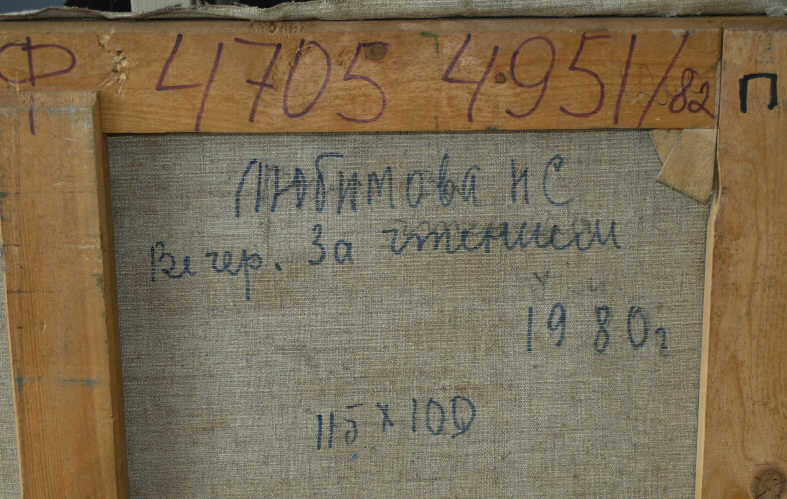 Ф 4705 4951/82 П
Любимова Н С
Вечер. За чтением
1980г
115 x 100